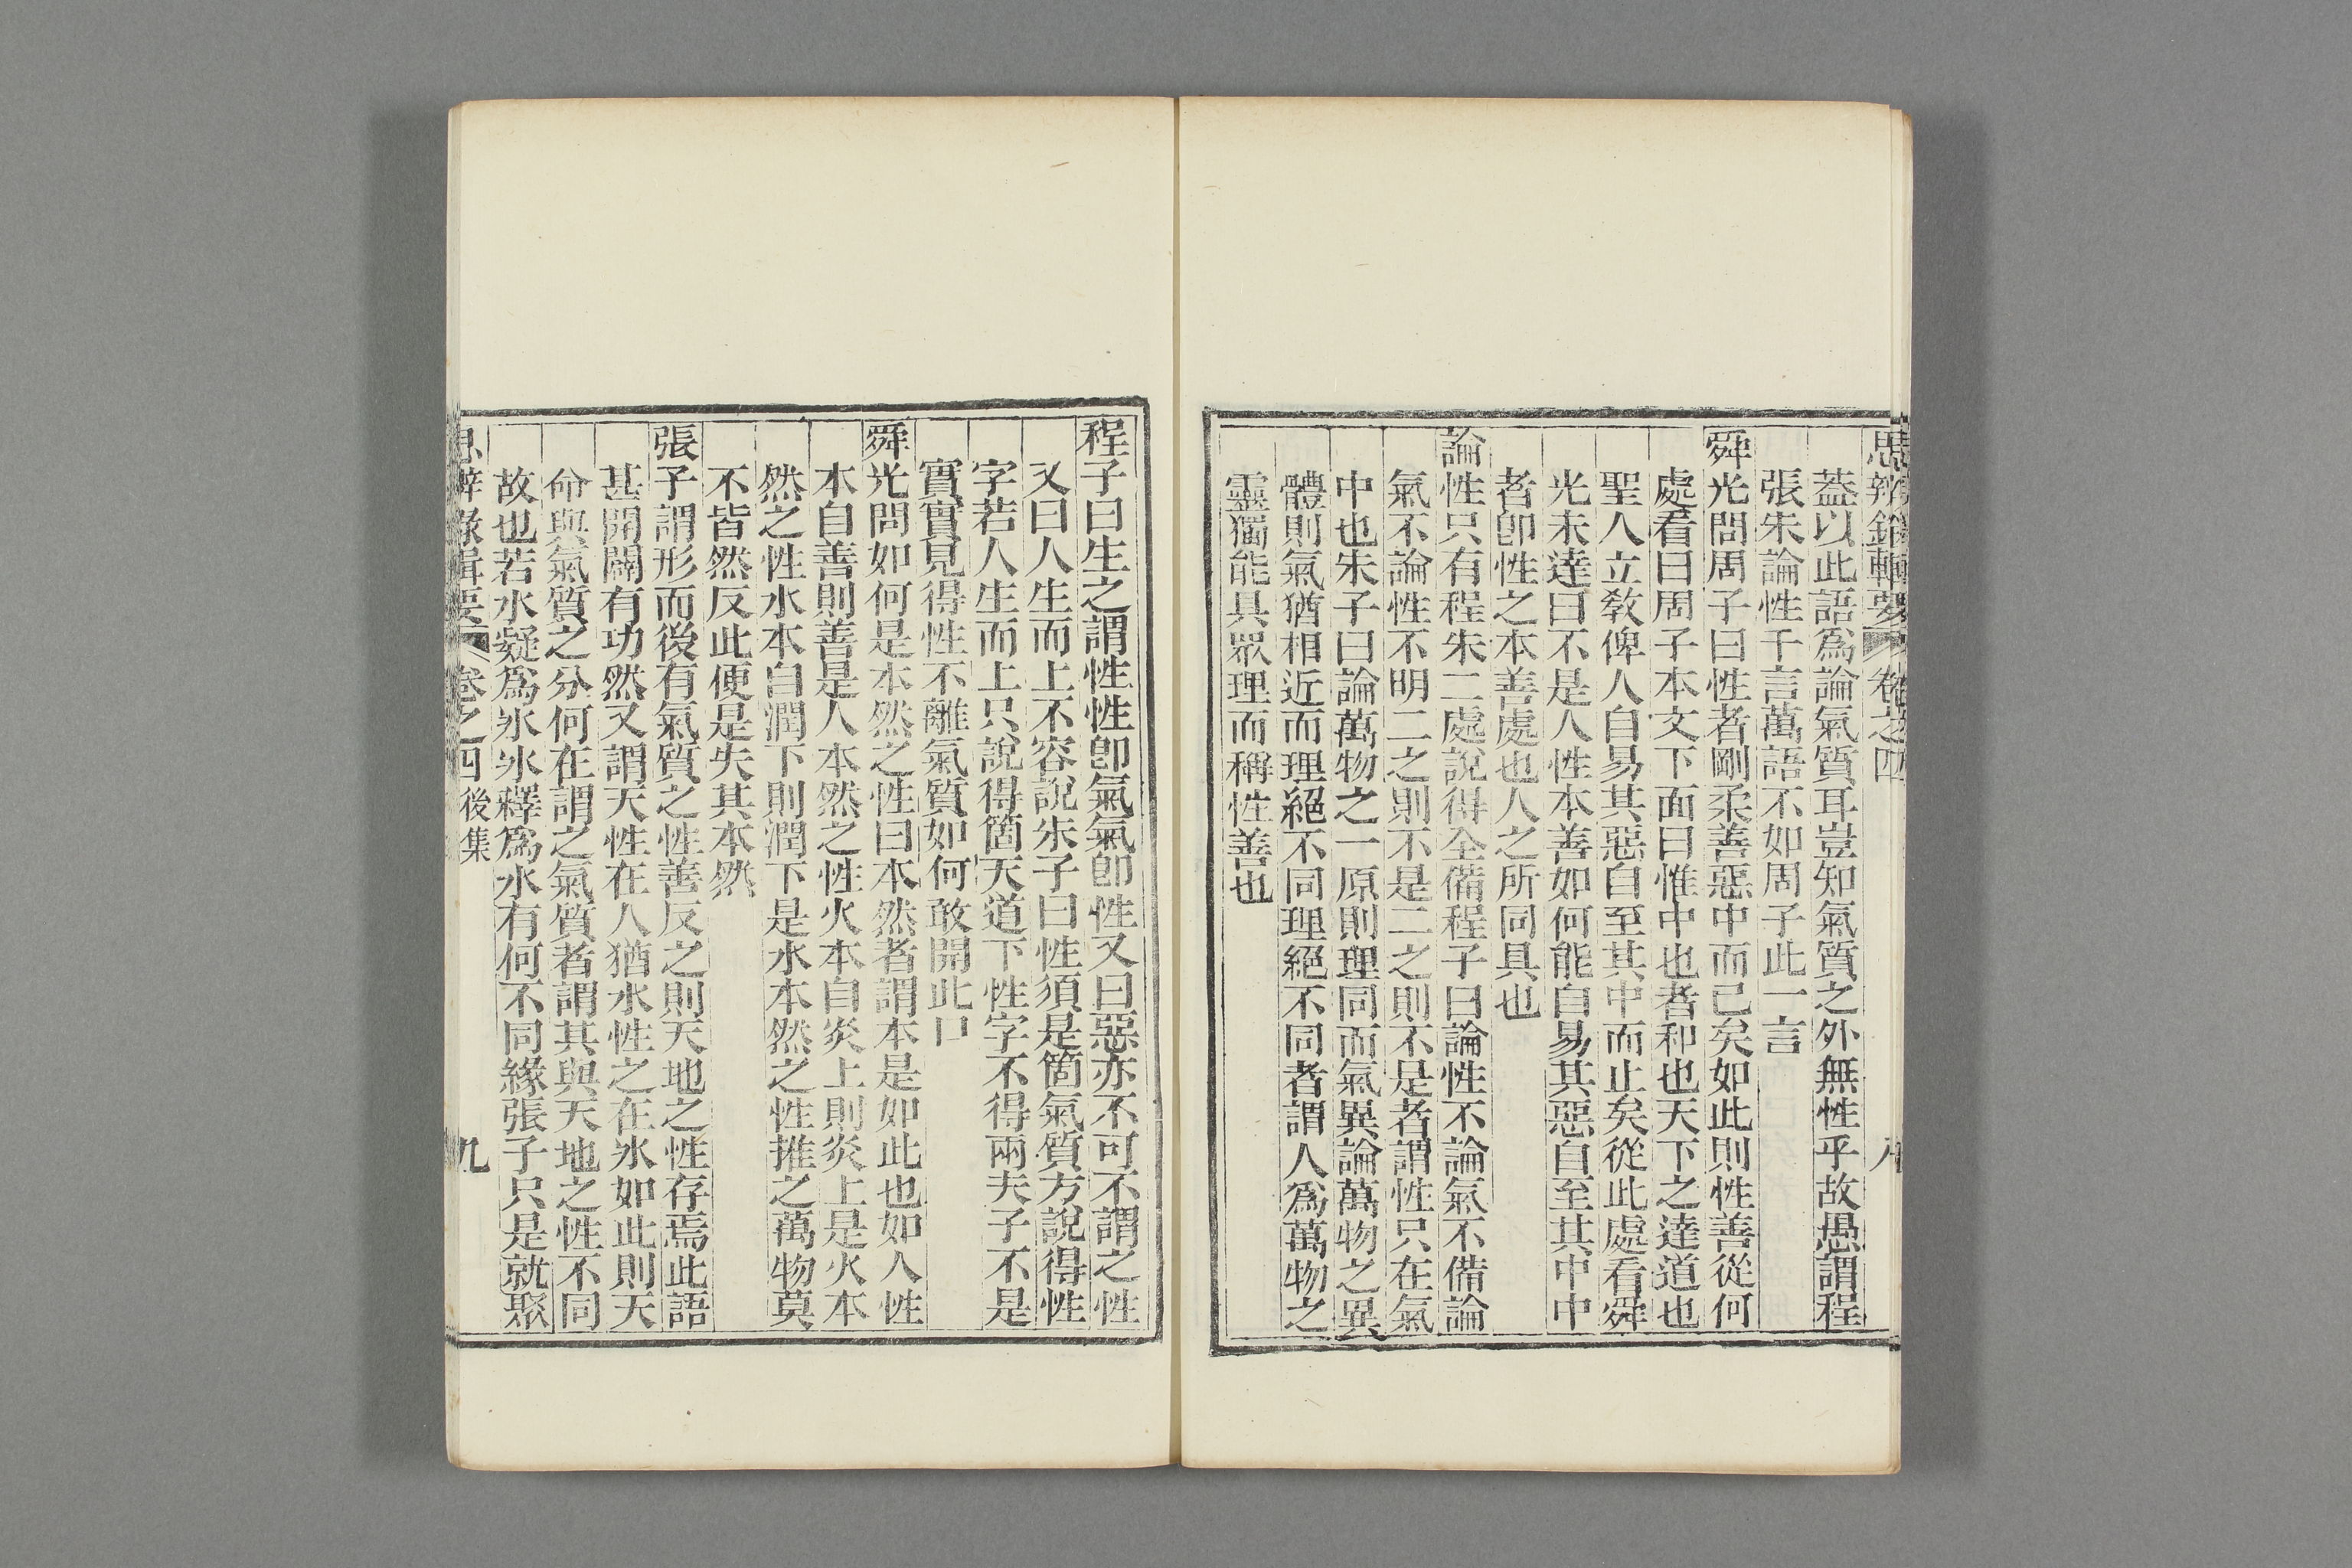 思辨錄輯要 卷之四 八
蓋以此語爲論氣質耳豈知氣質之外無性乎故愚謂程
張朱論性千言萬語不如周子此一言
舜光問周子曰性者剛柔善惡中而已矣如此則性善從何
處看曰周子本文下面曰惟中也者和也天下之達道也
聖人立敎俾人自易其惡自至其中而止矣從此處看舜
光未達曰不是人性本善如何能自易其惡自至其中中
者卽性之本善處也人之所同具也
論性只有程朱二處說得全備程子曰論性不論氣不備論
氣不論性不明二之則不是二之則不是者謂性只在氣
中也朱子曰論萬物之一原則理同而氣異論萬物之異
體則氣猶相近而理絕不同理絕不同者謂人爲萬物之
靈獨能具眾理而稱性善也
程子曰生之謂性性卽氣氣卽性又曰惡亦不可不謂之性
又曰人生而上不容說朱子曰性須是箇氣質方說得性
字若人生而上只說得箇天道下性字不得兩夫子不是
實實見得性不離氣質如何敢開此口
舜光問如何是本然之性曰本然者謂本是如此也如人性
本自善則善是人本然之性火本自炎上則炎上是火本
然之性水本自潤下則潤下是水本然之性推之萬物莫
不皆然反此便是失其本然
張子謂形而後有氣質之性善反之則天地之性存焉此語
甚開闢有功然又謂天性在人猶水性之在氷如此則天
命與氣質之分何在謂之氣質者謂其與天地之性不同
故也若水凝爲氷氷釋爲水有何不同緣張子只是就聚
思辨錄輯要 卷之四 後集 九